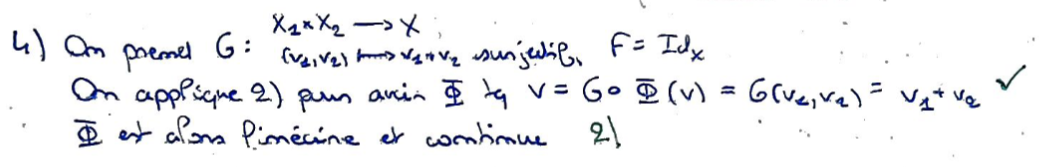 4) On prend G: X₁×X₂ → X
(v₁,v₂) ↦ v₁+v₂ surjectif, F = Id_X
On applique 2) pour avoir Φ tq v = G∘Φ(v) = G(v₁,v₂) = v₁+v₂ ✓
Φ est alors linéaire et continue 2)